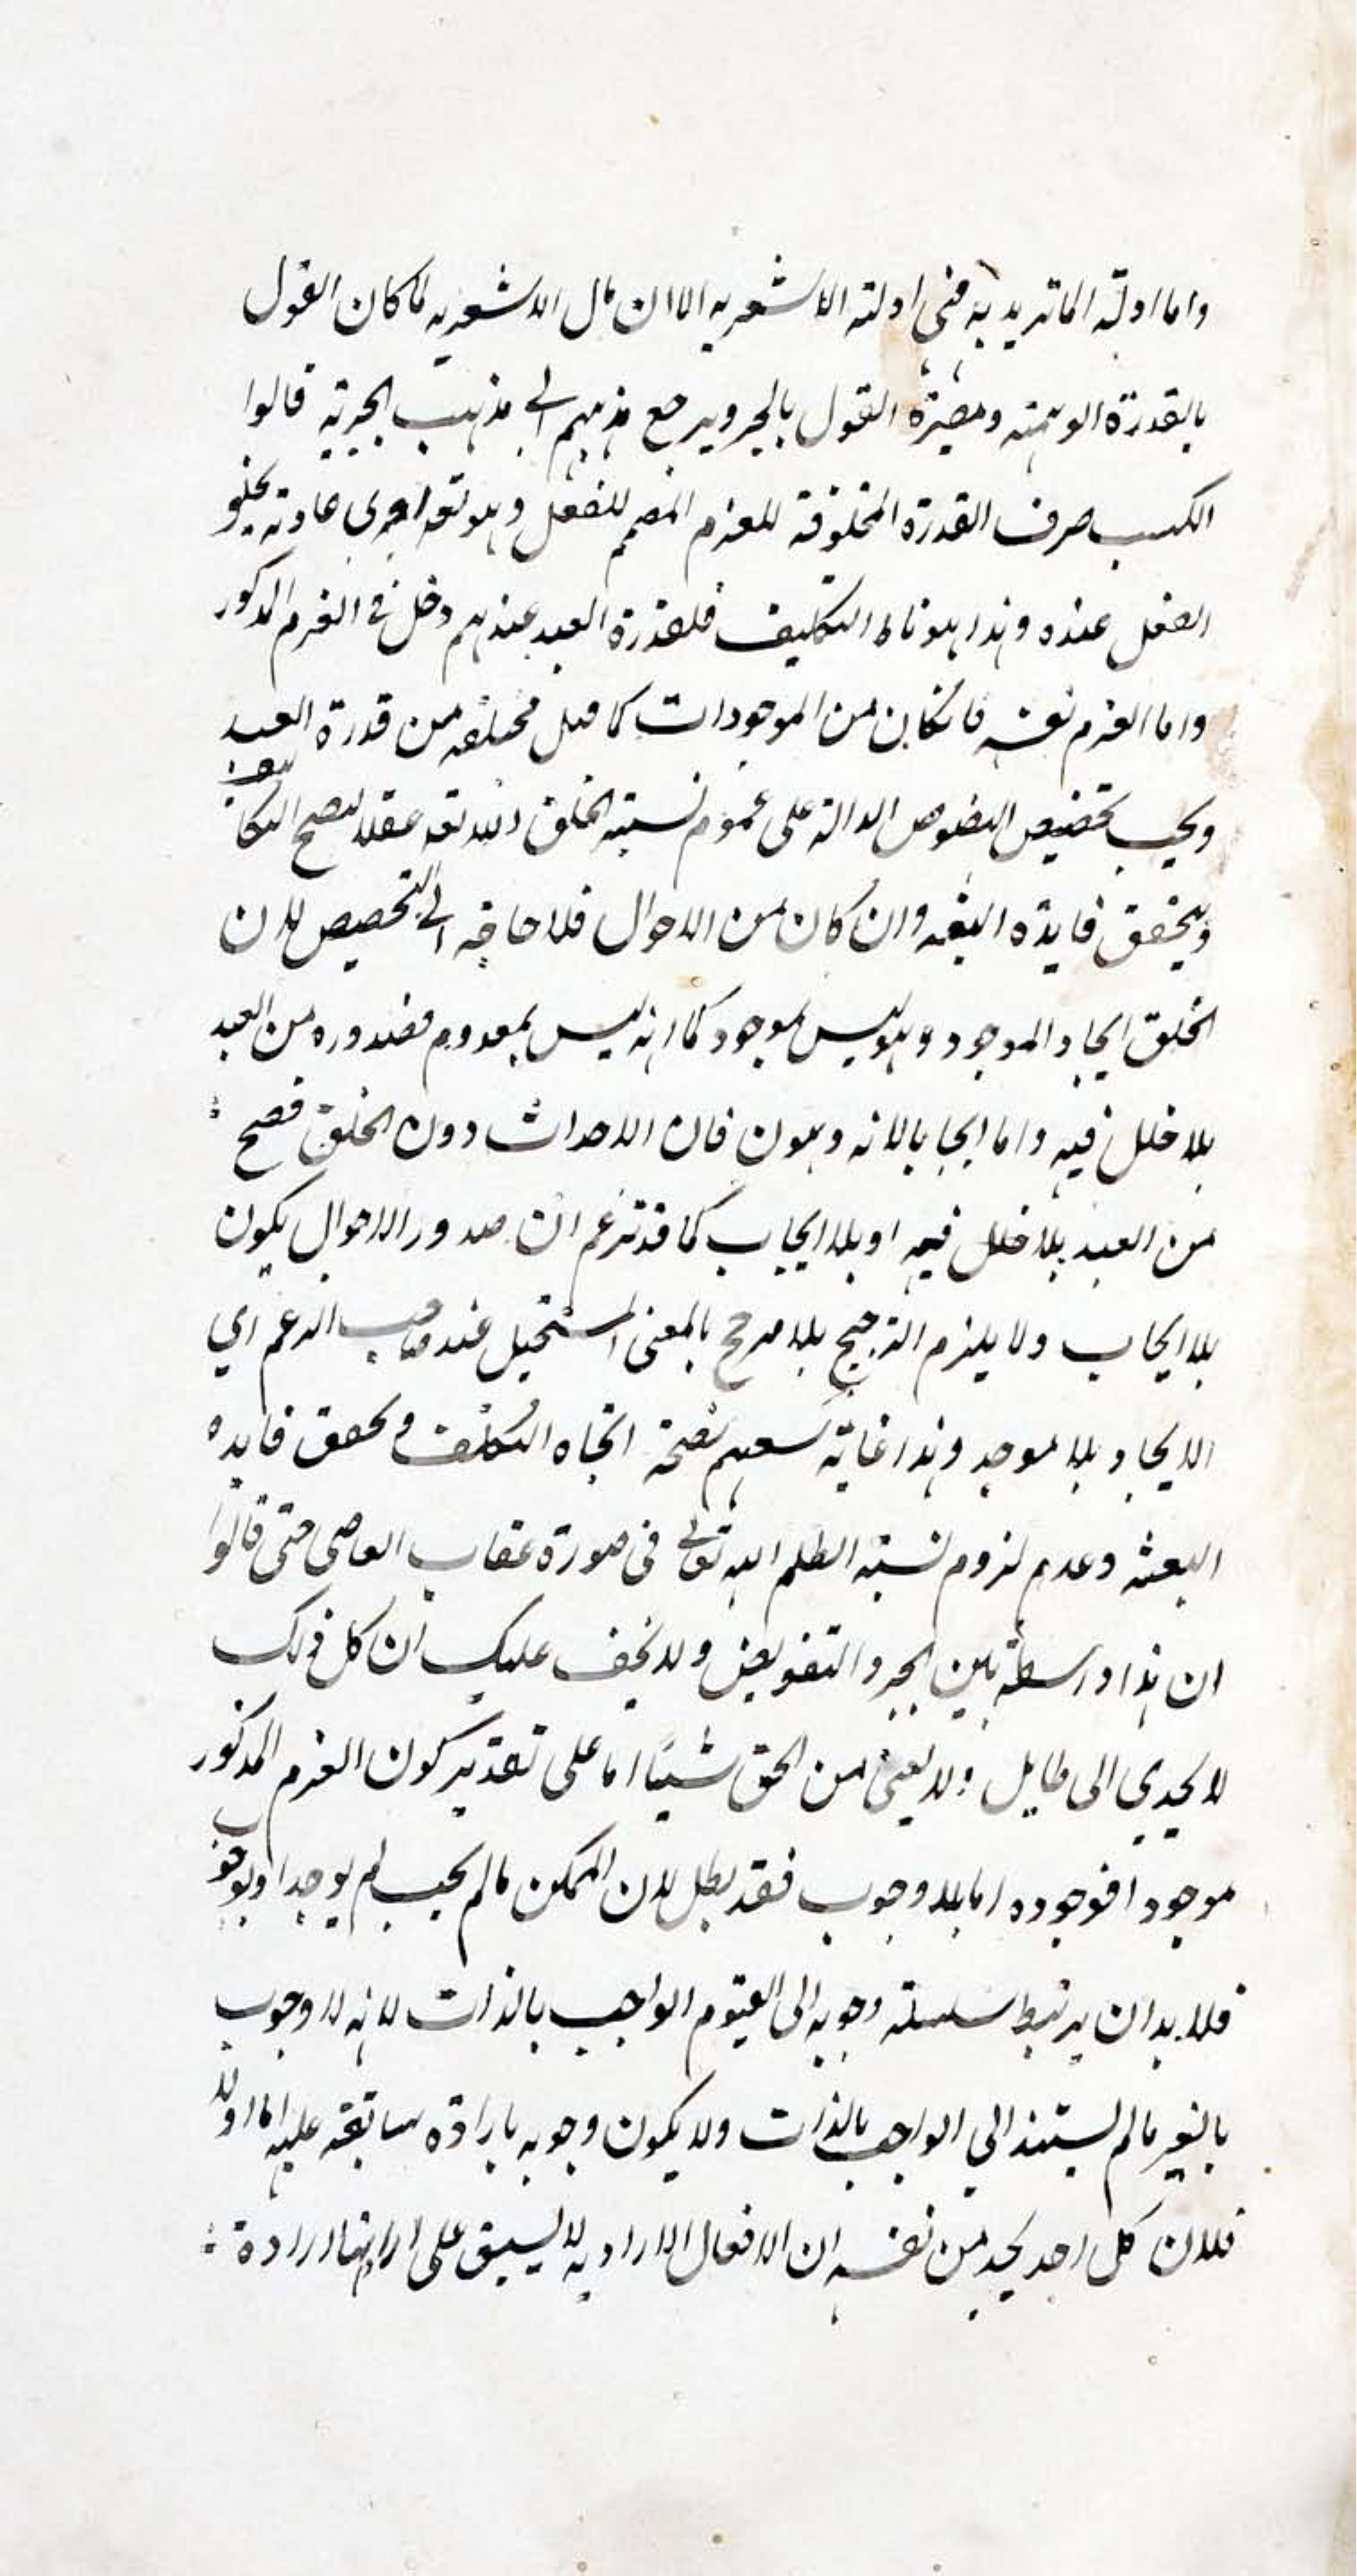 واما ادلة الماتريدية فهي ادلة الاشعرية الا ان مآل الاشعرية لما كان القول
بالقدرة الوهمية ومصيره القول بالجبر ويرجع مذهبهم الى مذهب الجبرية قالوا
الكسب صرف القدرة المخلوقة للعزم المصمم للفعل وهو تعه اجرى عادته بخلق
الفعل عنده وهذا هو مناط التكليف فلقدرة العبد عندهم دخل في العزم المذكور
واما العزم نفسه فان كان من الموجودات كما قيل فخلقه من قدرة العبد
ويجب تخصيص النصوص الدالة على عموم نسبة الخلق الله تعه عقلا ليصح التكليف
ويتحقق فايدة البعثه وان كان من الاحوال فلا حاجة الى التخصيص لان
الخلق ايجاد الموجود وهو ليس بموجود كما انه ليس بمعدوم فصدوره من العبد
بلا خلل فيه واما ايجابا لانه وهون فان الاحداث دون الخلق فصح
من العبد بلا خلل فيه او بلا ايجاب كما قد تزعم ان صدور الاحوال يكون
بلا ايجاب ولا يلزم الترجيح بلا مرجح بالمعنى المستحيل عند صاحب الزعم اي
الايجاد بلا موجد وهذا غاية سعيهم لصحة اتجاه التكليف وتحقق فايدة
البعثه وعدم لزوم نسبة الظلم اليه تعالى في صورة عقاب العاصى حتى قالوا
ان هذا واسطة بين الجبر والتفويض ولا يخف عليك ان كل ذلك
لا يجدي الى طايل ولا يغنى من الحق شيئا اما على تقدير كون العزم المذكور
موجودا فوجوده اما بلا وجوب فقد بطل لان الممكن مالم يجب لم يوجد او بوجوب
فلا بد ان يرتبط سلسلة وجوبه الى القيوم الواجب بالذات لانه لا وجوب
بالغير مالم يستند الي الواجب بالذات ولا يكون وجوبه بارادة سابقة عليه اما اولا
فلان كل احد يجد من نفسه ان الافعال الارادية لا يسبق على ارادتها ارادة